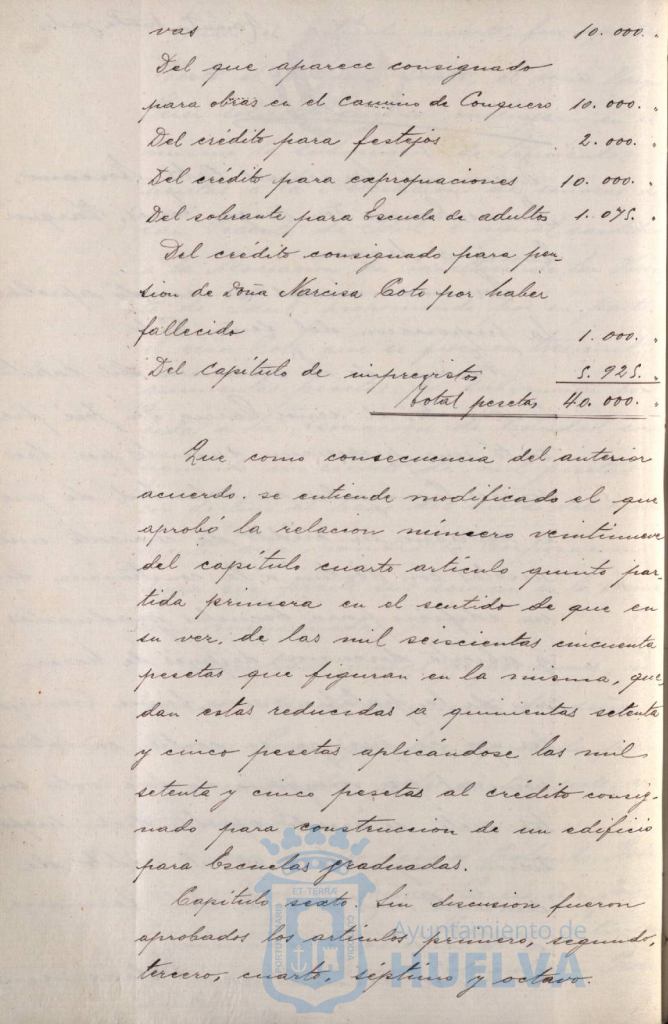 vas 10.000. „
Del que aparece consignado
para obras en el camino de Conquero 10.000. „
Del crédito para festejos 2.000. „
Del crédito para expropiaciones 10.000. „
Del sobrante para Escuela de adultos 1.075. „
Del crédito consignado para pen-
sion de Doña Narcisa Coto por haber
fallecido 1.000. „
Del capítulo de imprevistos 5.925. „
Total pesetas 40.000. „
Que como consecuencia del anterior
acuerdo. se entiende modificado el que
aprobó la relacion número veintinueve
del capítulo cuarto artículo quinto par-
tida primera en el sentido de que en
su vez, de las mil seiscientas cincuenta
pesetas que figuran en la misma, que-
dan estas reducidas á quinientas setenta
y cinco pesetas aplicándose las mil
setenta y cinco pesetas al crédito consig-
nado para construccion de un edificio
para Escuelas graduadas.
Capítulo sexto. Sin discusion fueron
aprobados los artículos primero, segundo,
tercero, cuarto, séptimo y octavo.
ET TERRÆ
Ayuntamiento de
HUELVA